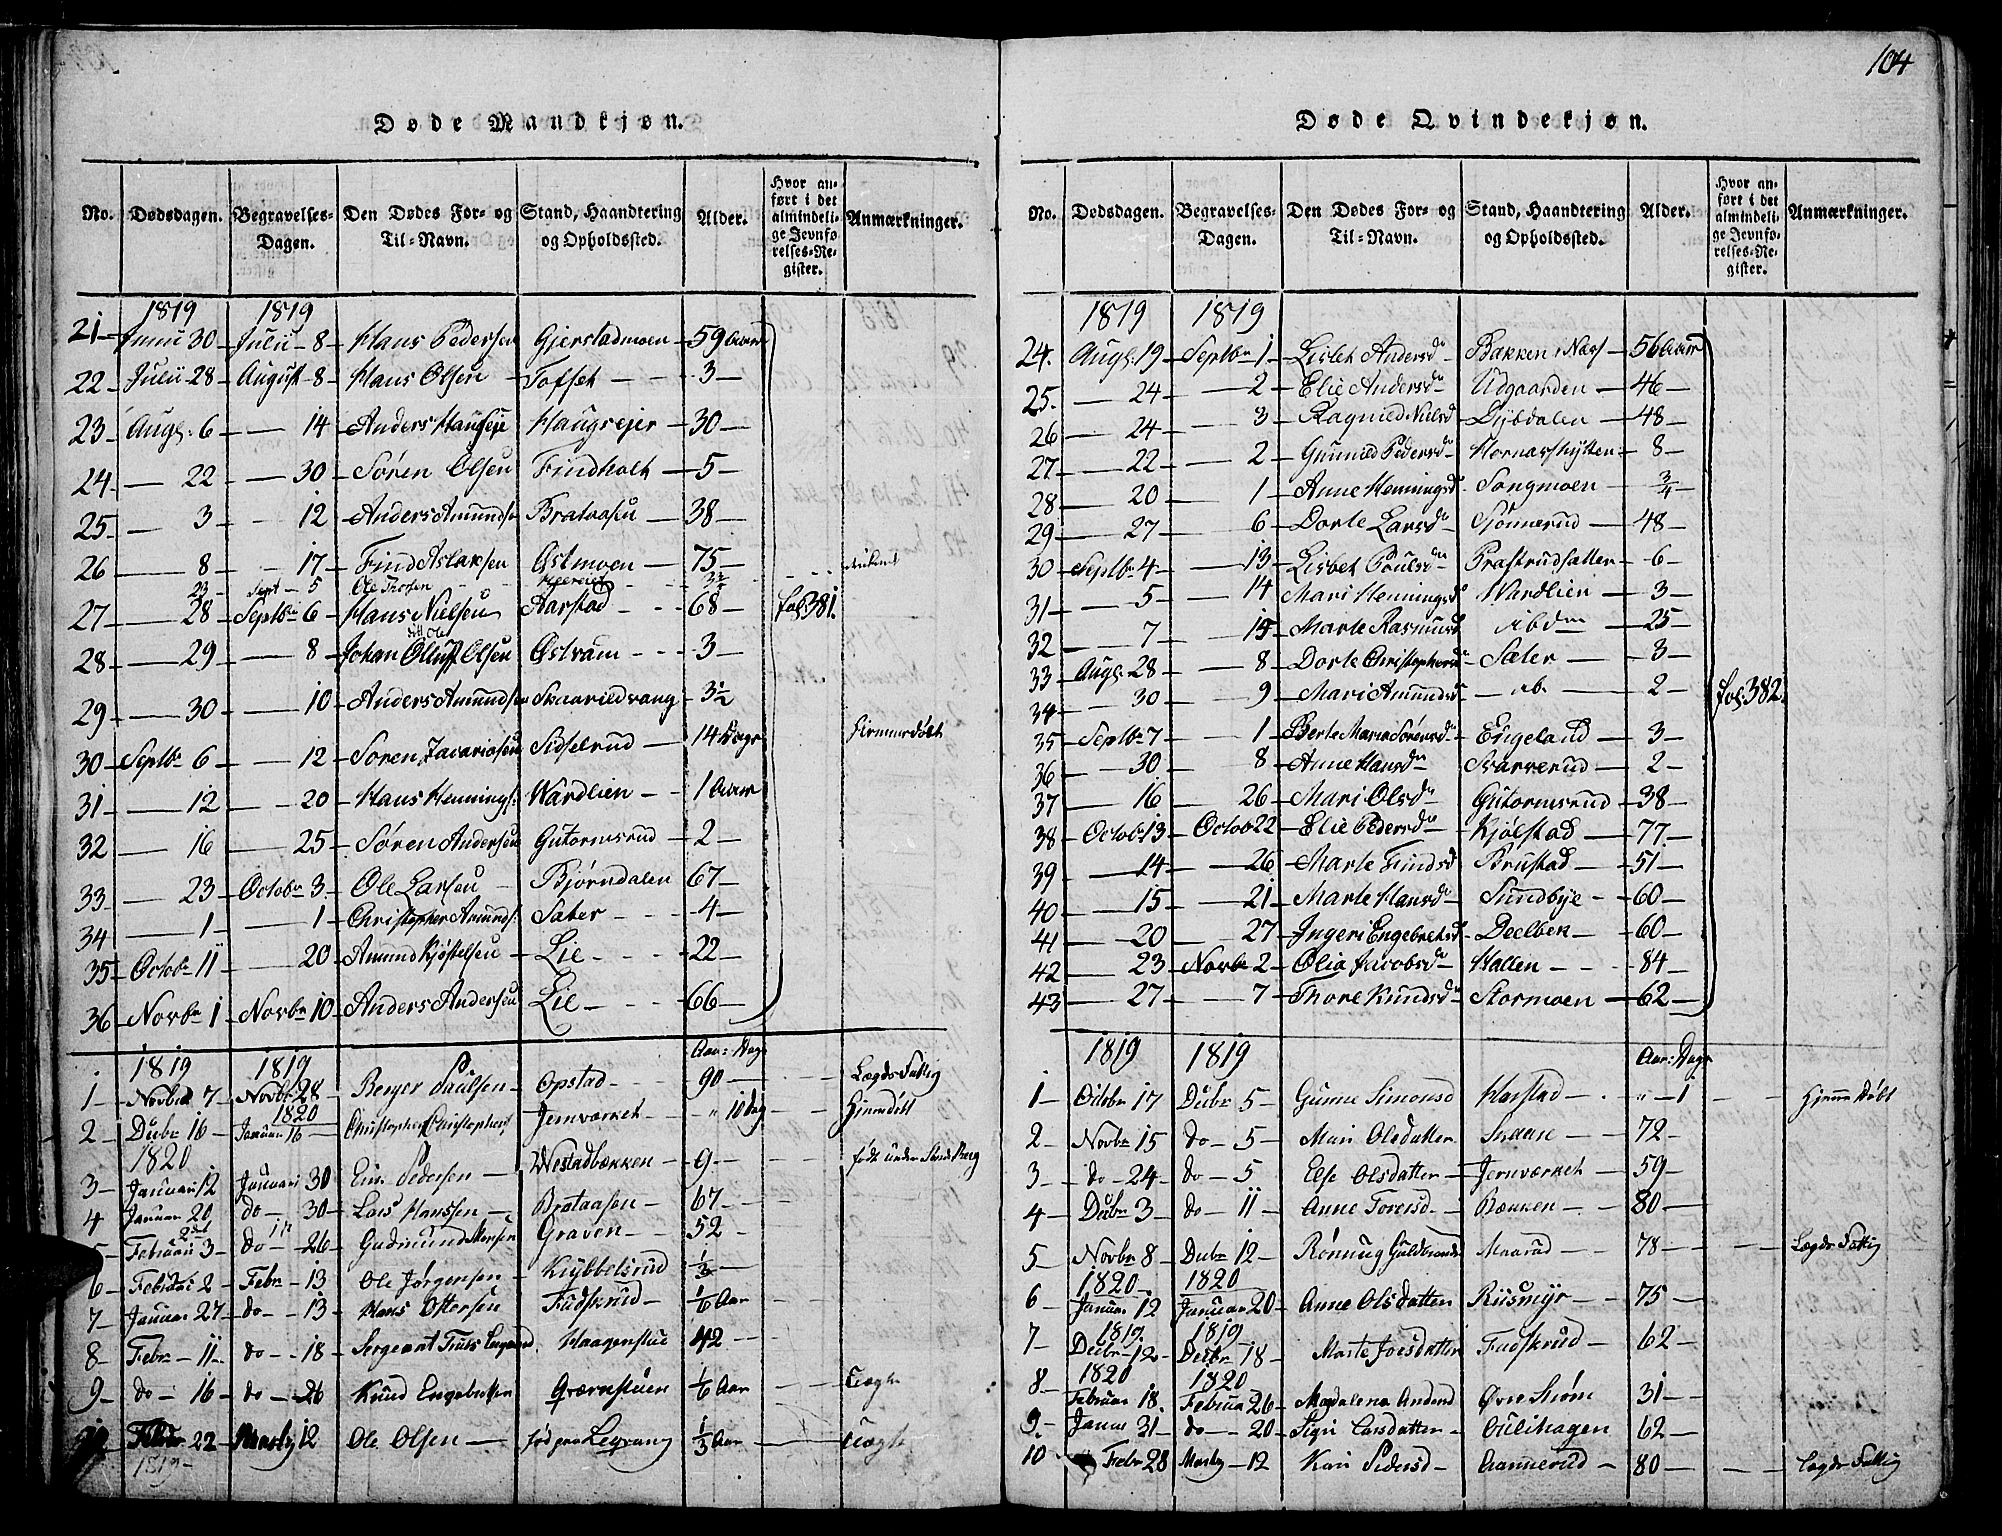 104
Døde Mandkjøn.
No. Dødsdagen. Begravelses-Dagen. Den Dødes For- og Til-Navn. Stand, Haandtering og Opholdssted. Alder. Hvor anført i det almindelige Jevnførelses-Register. Anmærkninger.
1819 1819
21 Junii 30 Julii 8 Hans Pedersen Gjerstadmoen 59 Aar
22 Julii 28 August 8 Hans Olsen Tofset 3
23 Aug. 6 14 Anders Haugseje Haugsejer 30
24 22 30 Søren Olsen Findholt 5
25 3 12 Anders Amunds. Brataasen 38
26 8 17 Find Aslaksen Østmoen 75
23 Sept 5 Ole
27 28 Septbr 6 Hans Nielsen Aarstad 68 fol: 381.
28 29 8 Johan Olluf Olsen Østvam 3
29 30 10 Anders Amundsen Skaarildvang 3½
30 Septbr 6 12 Søren Zacariasen Sidselrud 14 Dage Hiemmedøbt
31 12 20 Hans Hennings: Wardlien 1 Aar
32 16 25 Søren Andersen Gutormsrud 2
33 23 Octobr 3 Ole Larsen Bjørndalen 67
34 1 1 Christopher Amunds: Sæter 4
35 Octobr 11 20 Amund Kjøstelsen Lie 22
36 Novbr 1 Novbr 10 Anders Andersen Lie 66
1819 1819 Aar: Dage
1 Novbr 7 Novbr 28 Berger Paulsen Opstad 90 Lægds Fattig
1820
2 Decbr 16 Januar 16 Christopher Christophers. Jernværket " 10 Dag Hjemmedøbt
1820
3 Januari 12 Januari 30 Pedersen Westadbækken 9
4 Januar 20 do 30 Lars Hanssen Brataasen 67
5 Februari 3 do 26 Gudmund Graven 52
6 Februari 2 Febr 13 Ole Jørgensen Knybbelsrud ½
7 Januar 27 do 13 Hans Ottersen Fudskrud 1/6 Aar
8 Febr 11 do 18 Sergeant Truls Haagenstue 42
9 do 16 do 26 Knud Engebretsen Gjærnestuen 1/6 Aar
10 Febr 22 Marty 12 Ole Olsen fød paa Legvang 1/3 Aar
1819
Døde Qvindekjøn.
No. Dødsdagen. Begravelses-Dagen. Den Dødes For- og Til-Navn. Stand, Haandtering og Opholdssted. Alder. Hvor anført i det almindelige Jevnførelses-Register. Anmærkninger.
1819 1819
24. Aug. 19 Septbr 1 Lisbet Andersdr Bakken i Næss 56 Aar
25. 24 2 Elie Andersdr Udgaarden 46
26 24 3 Ragnild Nielsd Dybdalen 48
27 22 2 Gunnild Pedersdr Hornæshytten 8
28 20 1 Anne Henningsd. Songmoen ¾
29 27 6 Dorte Larsdr Sønnerud 48
30 Septbr 4 13 Lisbet Poulsdr Præstrudsætter 6
31 5 14 Mari Henningsd Wardlien 3
32 7 15 Marte Rasmusd ibdm 25
33 Aug. 28 8 Dorte Christophersd Sæter 3
34 30 9 Mari Amundsd ib. 2 fol: 382.
35 Septbr 7 1 Berte Maria Sørensdr Engeland 3
36 30 8 Anne Hansdr Svarverud 2
37 16 26 Mari Olsdr Gutormsrud 38
38 Octobr 13 Octob 22 Elie Pedersdr Kjølstad 77
39 14 26 Marte Findsd Brustad 51
40 15 21 Marte Hansdr Sundbye 60
41 20 27 Ingeri Engebretsd Deelbek 60
42 23 Novbr 2 Olia Jacobsdr Hallen 84
43 27 7 Thore Knudsdr Stormoen 62
1819 1819 Aar: Dage
1 Octobr 17 Decbr 5 Gunne Simonsd Harstad " 1 Hjemme Døbt
2 Novbr 15 do 5 Mari Olsdatter 72
3 do 24 do 5 Else Olsdatter Jernværket 59
4 Decbr 3 do 11 Anne Toresd Bækken 80
5 Novbr 8 Decbr 12 Rønnug Guldbrands 78 Lægds Fattig
1820 1820
6 Januar 12 Januar 20 Anne Olsdatter Riismyr 75
1819. 1819
7 Decbr 12 Decbr 18 Marte Joesdatter Fudskrud 62
1820 1820
8 Februar 18. Februar 26 Magdalena Andersd Øvre Strøm 31
9 Janur 31 do 20 Sigri Larsdatter Oulihagen 62
10 Febr 28 Marty 12 Kari Pedersd Aannerud 80 Lægds Fattig